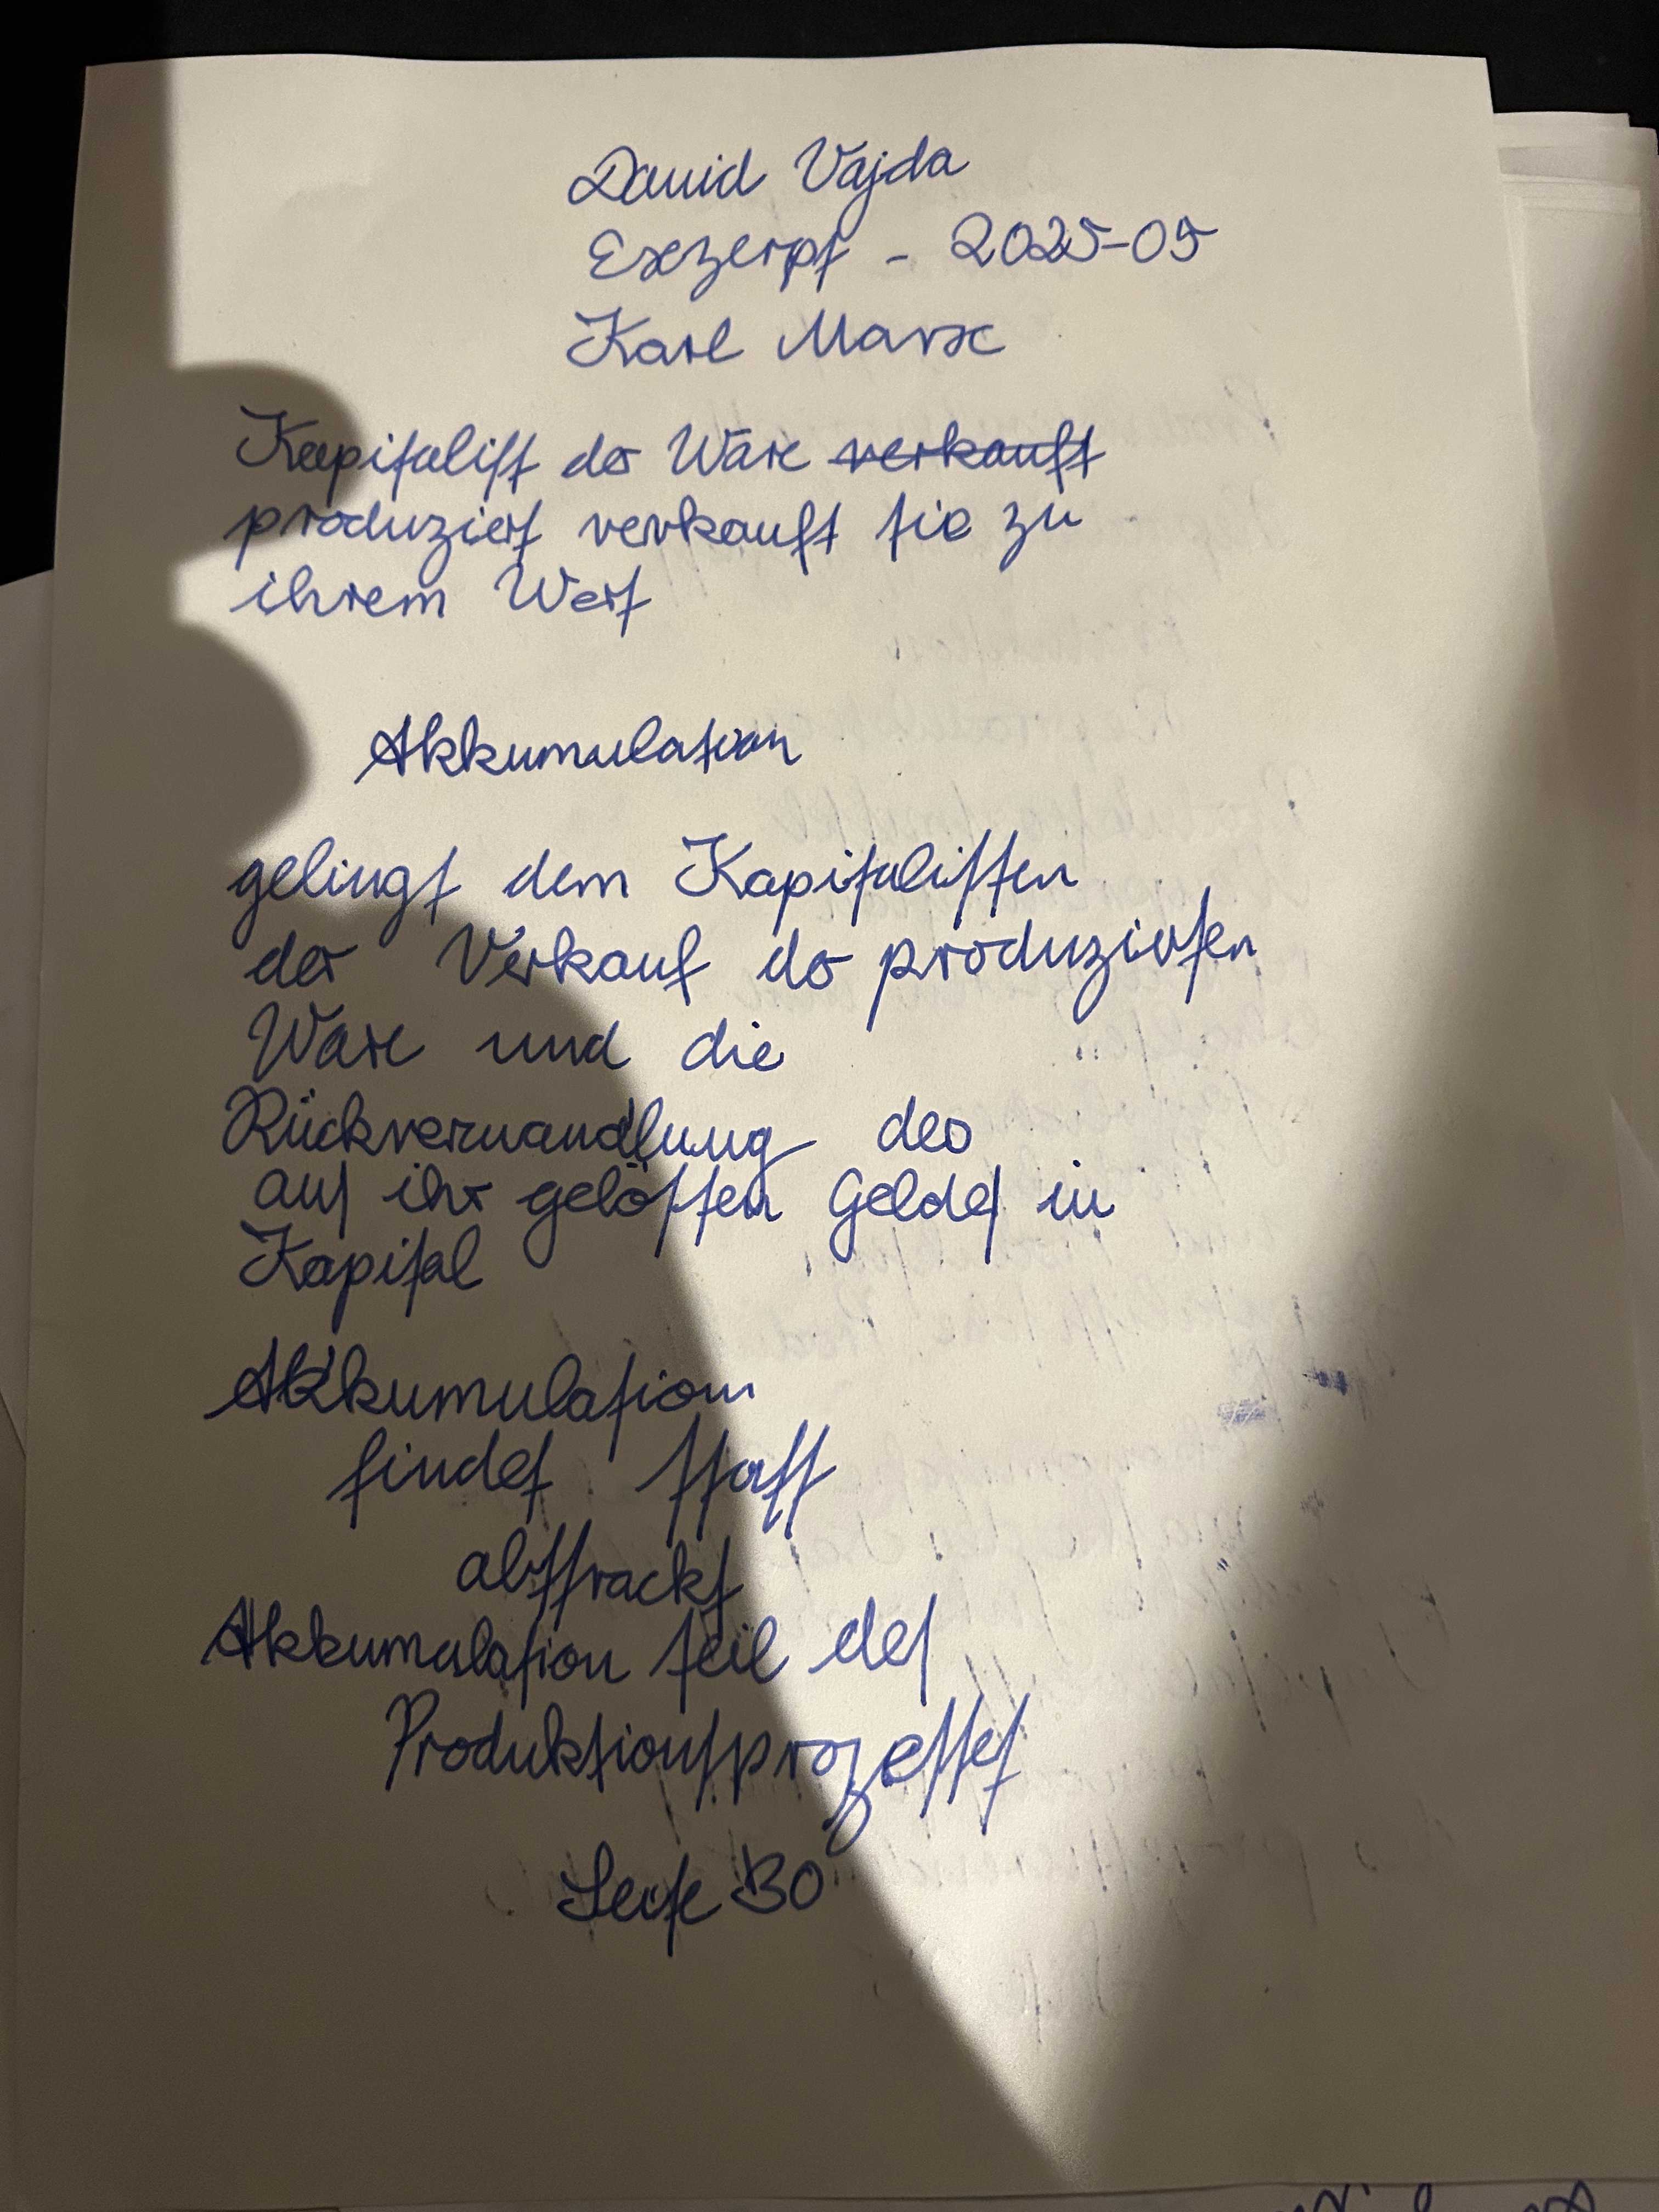 David Vajda
Exzerpt - 2025-09
Karl Marx
Kapitalist der Ware verkauft
produziert verkauft sie zu
ihrem Wert
Akkumulation
gelingt dem Kapitalisten
der Verkauf der produzierten
Ware und die
Rückverwandlung des
aus ihr gelösten Geldes in
Kapital
Akkumulation
findet statt
abstrackt
Akkumulation teil des
Produktionsprozesses
Seite 30